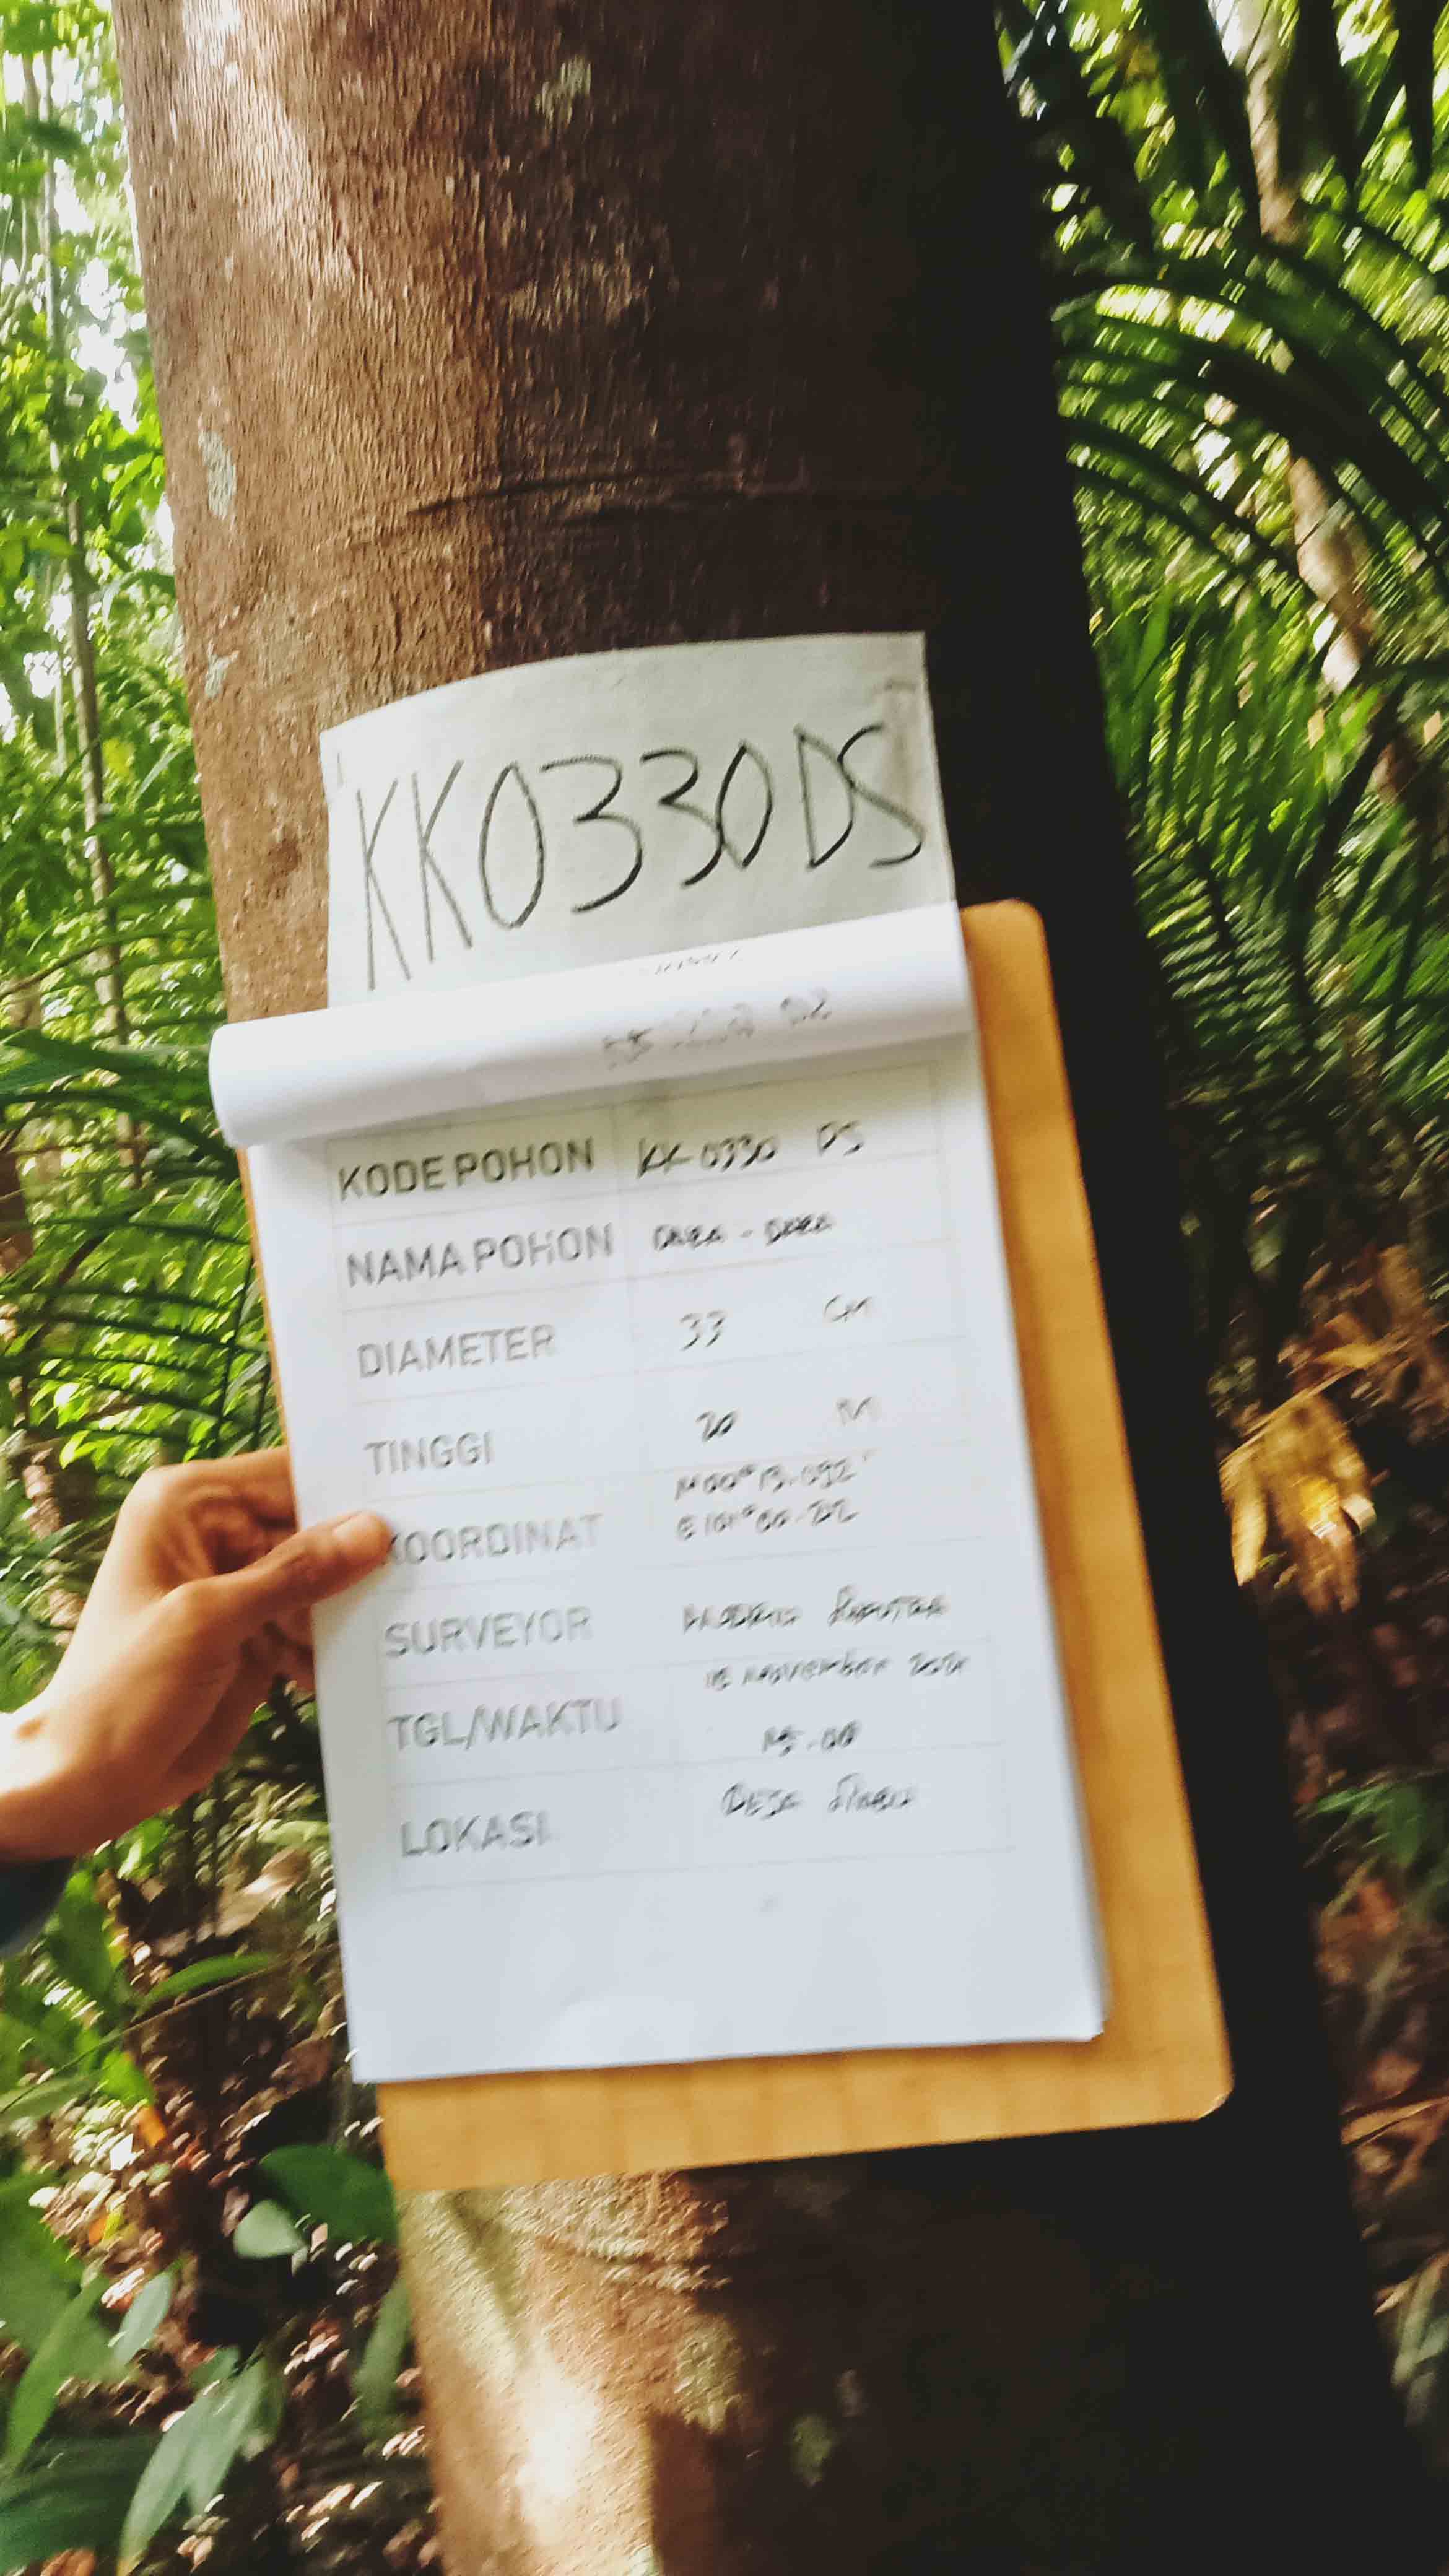 KK0330DS
KODE POHON KK 0330 DS
NAMA POHON DARA - DARA
DIAMETER 33 CM
TINGGI 20 M
N 00° 13.092'
KOORDINAT E 101° 00.
SURVEYOR
TGL/WAKTU November
15.00
LOKASI DESA